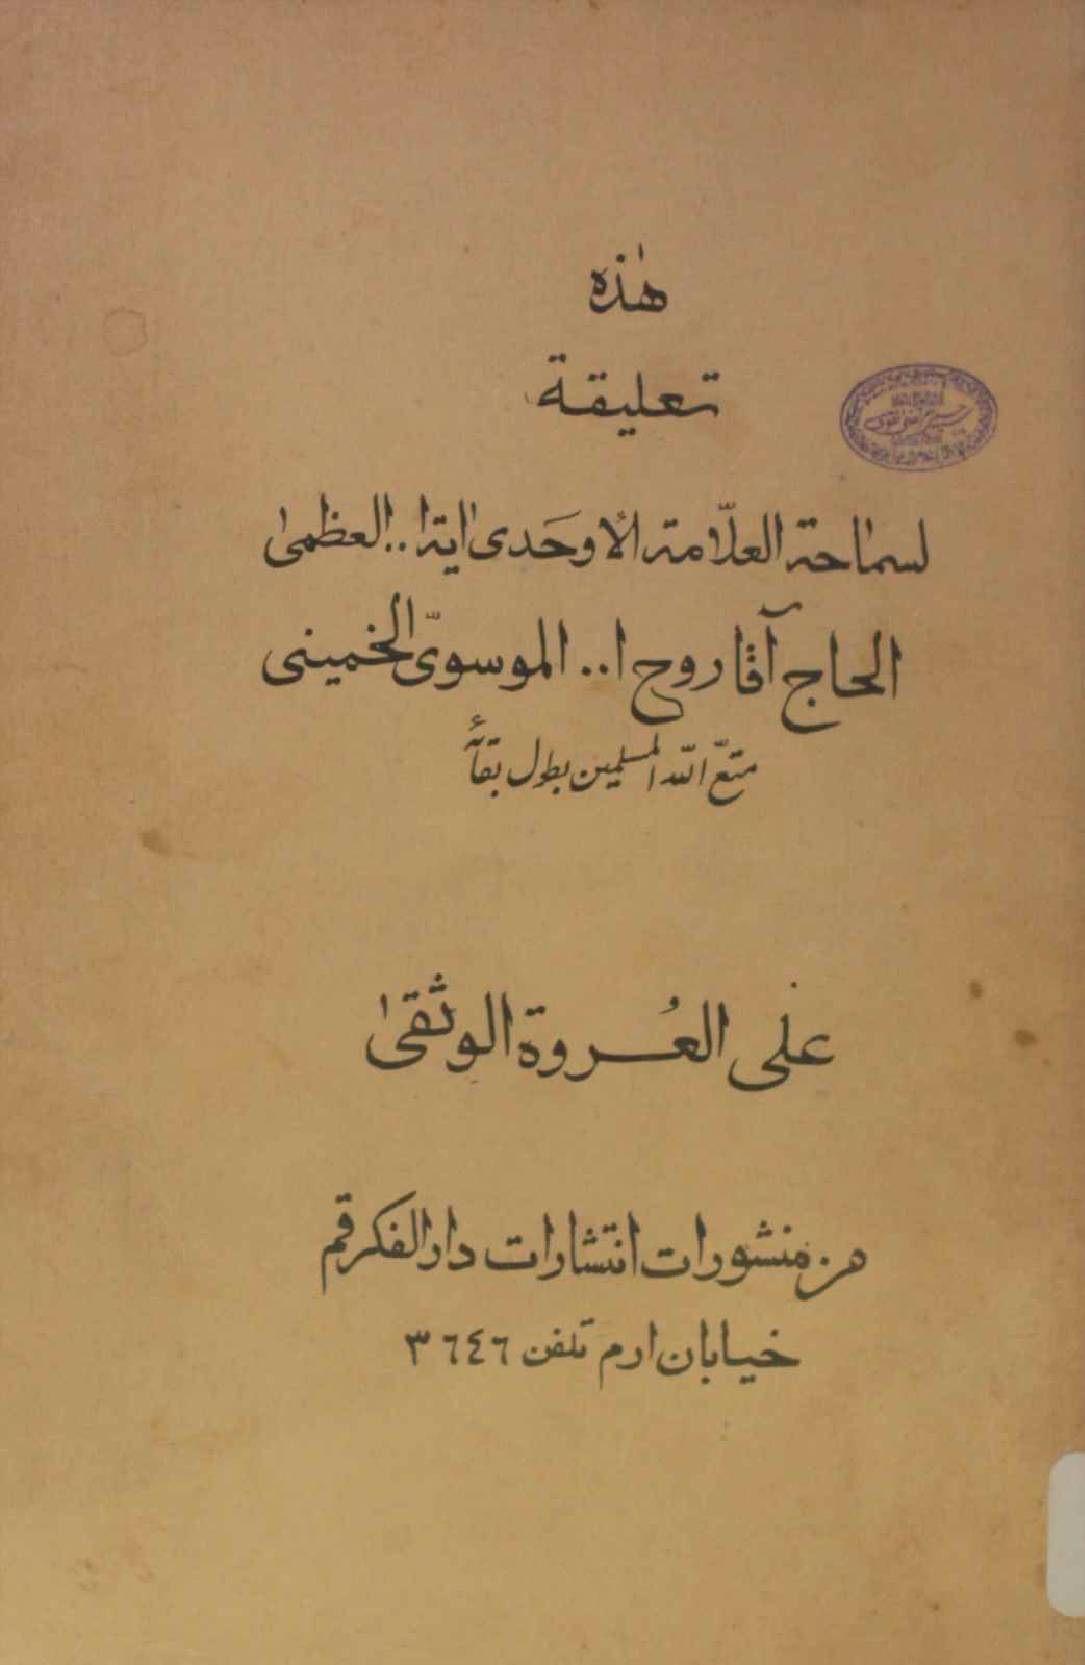 هٰذه
تعليقة
لسماحة العلّامة الأوحَدى اية ا.. العظمىٰ
الحاج آقا روح ا.. الموسوىّ الخمينى
متّع اللّه المسلمين بطول بقآئه
على العُروة الوثقىٰ
من منشورات انتشارات دار الفكر قم
خيابان ارم تلفن ٣٦٤٦